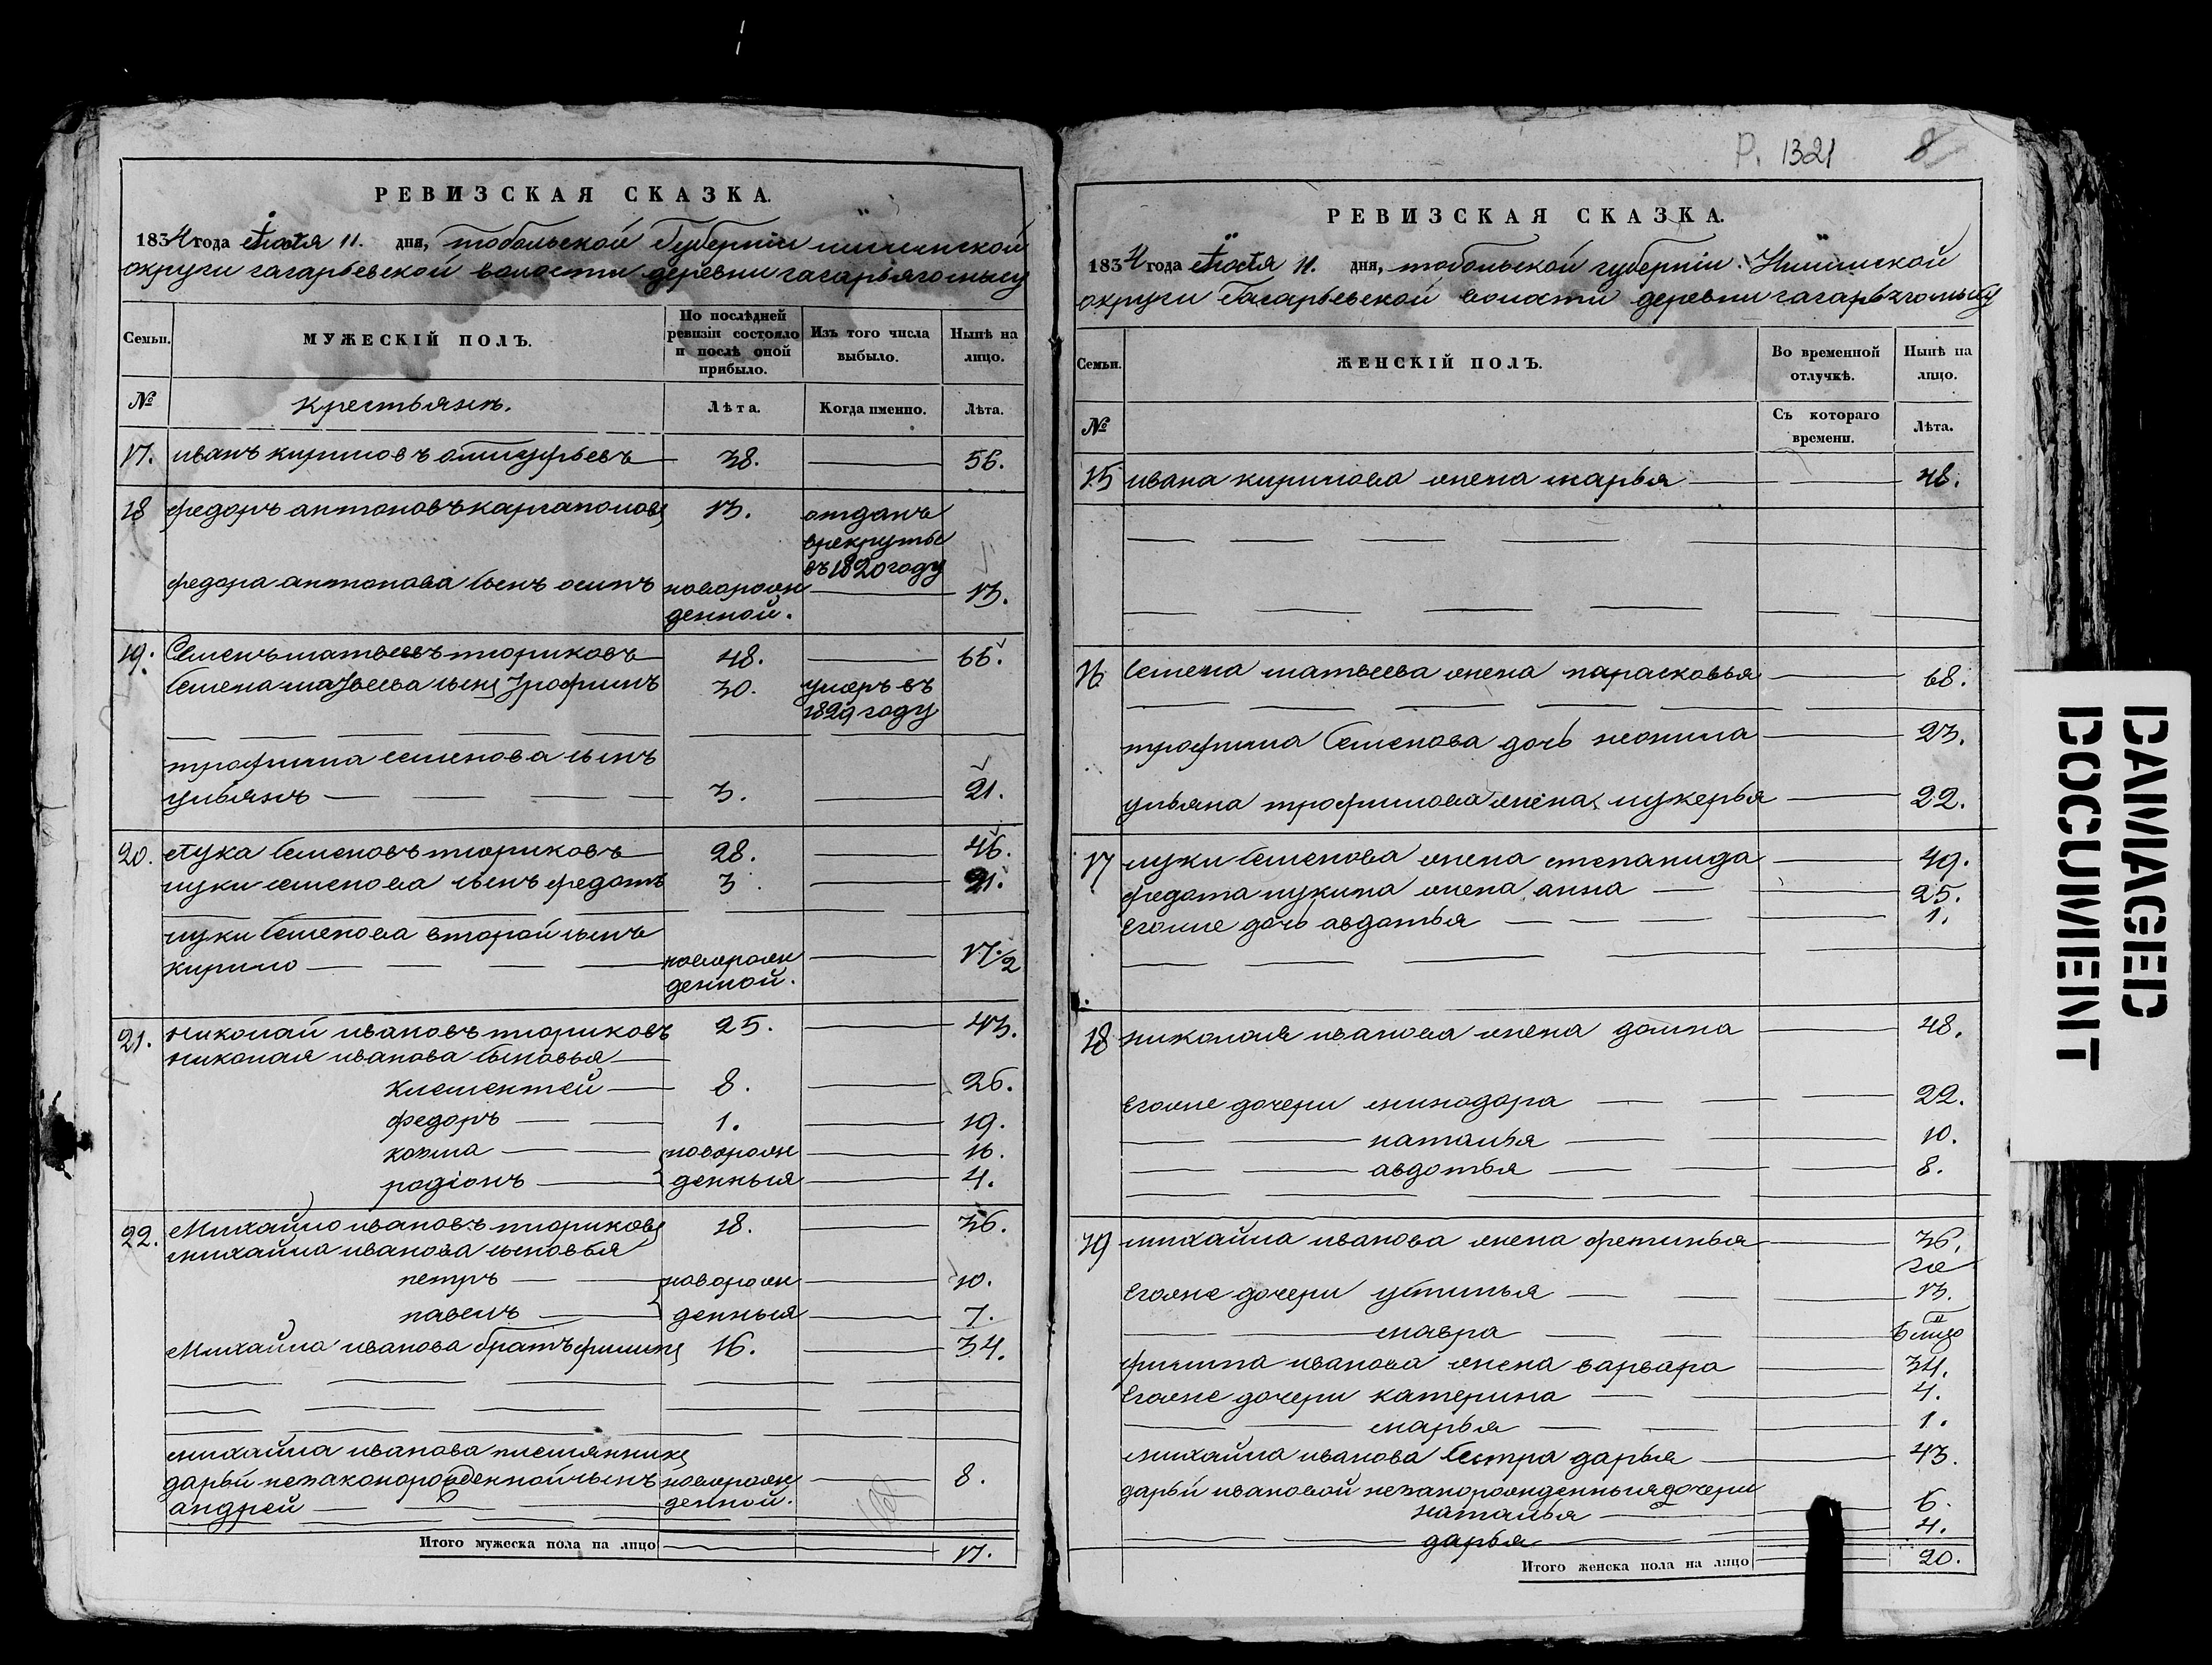 Р. 1321 8
РЕВИЗСКАЯ СКАЗКА.
1834 года Маія 11. дня, тобольской Губерніи ишимской
округи гагарьевской волости деревни гагарьягомысу
Семьи. МУЖЕСКІЙ ПОЛЪ. По послѣдней ревизіи состояло и послѣ оной прибыло. Изъ того числа выбыло. Нынѣ на лицо.
№ Крестьянъ. Лѣта. Когда именно. Лѣта.
17. иванъ кириловъ 38. 56.
18 федоръ антоновъ каргаполовъ 13. отданъ
врекруты
въ 1820 году
федора антонова сынъ осипъ новорож 13.
денной.
19. Семенъ матвеевъ тюриковъ 48. 66.
Семена матвеева сынъ трофимъ 30. умеръ въ
1829 году
трофима семенова сынъ
ульянъ 3. 21.
20. Лука Семеновъ тюриковъ 28. 46.
луки семенова сынъ федотъ 3. 21.
луки Семенова второй сынъ
кирило новорож 17 1/2
денной.
21. николай ивановъ тюриковъ 25. 43.
николая иванова сыновья
клементей 8. 26.
федоръ 1. 19.
козма новорож 16.
родіонъ денныя 4.
22. Михайло ивановъ тюриковъ 18. 36.
михайла иванова сыновья
петръ новорож 10.
павелъ денныя 7.
Михайла иванова братъ филипъ 16. 34.
михайла иванова племянникъ
дарьи незаконорожденной сынъ новорож 8.
андрей денной.
Итого мужеска пола на лицо 17.
РЕВИЗСКАЯ СКАЗКА.
1834 года Маія 11. дня, тобольской губерніи Ишимской
округи Гагарьевской волости деревни гагарьягомысу
Семьи. ЖЕНСКІЙ ПОЛЪ. Во временной отлучкѣ. Нынѣ на лицо.
№ Съ котораго времени. Лѣта.
15 ивана кирилова жена марья 48.
16 Семена матвеева жена парасковья 68.
трофима Семенова дочь неонила 23.
ульяна трофимова жена лукерья 22.
17 луки Семенова жена степанида 49.
федота лукина жена анна 25.
Егоже дочь авдотья 1.
18 николая иванова жена домна 48.
Егоже дочери минодора 22.
наталья 10.
авдотья 8.
19 михайла иванова жена фетинья 36.
Егоже дочери устинья 13.
мавра
филипа иванова жена варвара 34.
Егоже дочери катерина 4.
марья 1.
михайла иванова сестра дарья 43.
дарьи ивановой незаконорожденныя дочери
наталья 6.
дарья 4.
Итого женска пола на лицо 20.
DAMAGED
DOCUMENT